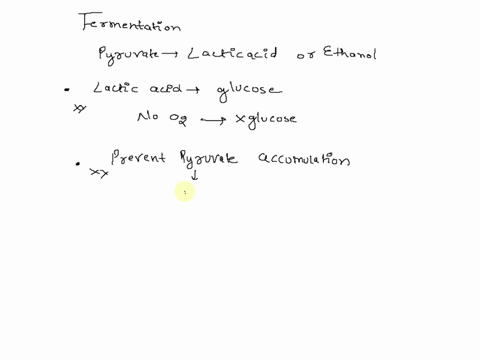 Fermentation
Pyruvate → Lactic acid or Ethanol
• Lactic acid → glucose
xx No O2 → x glucose
• Prevent Pyruvate accumulation
xx ↓